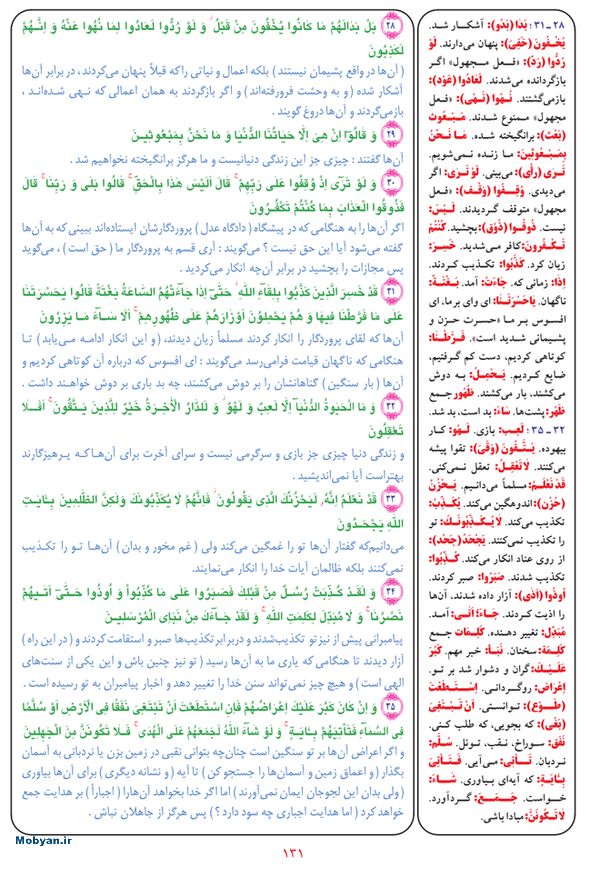 ۲۸ بَلْ بَدَالَهُمْ مَا كَانُوا يُخْفُونَ مِنْ قَبْلُ ۖ وَ لَوْ رُدُّوا لَعَادُوا لِمَا نُهُوا عَنْهُ وَ اِنَّهُمْ
لَكٰذِبُونَ
( آن‌ها در واقع پشیمان نیستند ) بلکه اعمال و نیاتی را که قبلاً پنهان می‌کردند، در برابر آن‌ها
آشکار شده ( و به وحشت فرورفته‌اند ) و اگر بازگردند به همان اعمالی که نهی شده‌اند ،
بازمی‌گردند و آن‌ها دروغ گویند .
۲۹ وَ قَالُوٓا اِنْ هِیَ اِلَّا حَیَاتُنَا الدُّنْیَا وَ مَا نَحْنُ بِمَبْعُوثِینَ
آن‌ها گفتند : چیزی جز این زندگی دنیانیست و ما هرگز برانگیخته نخواهیم شد .
۳۰ وَ لَوْ تَرٰٓی اِذْ وُقِفُوا عَلٰی رَبِّهِمْ ۚ قَالَ اَلَیْسَ هٰذَا بِالْحَقِّ ۚ قَالُوا بَلٰی وَ رَبِّنَا ۚ قَالَ
فَذُوقُوا الْعَذَابَ بِمَا كُنْتُمْ تَكْفُرُونَ
اگر آن‌ها را به هنگامی که در پیشگاه ( دادگاه عدل ) پروردگارشان ایستاده‌اند ببینی که به آن‌ها
گفته می‌شود آیا این حق نیست ؟ می‌گویند : آری قسم به پروردگار ما ( حق است ) ، می‌گوید
پس مجازات را بچشید در برابر آن‌چه انکار می‌کردید .
۳۱ قَدْ خَسِرَ الَّذِینَ كَذَّبُوا بِلِقَآءِ اللّٰهِ ۖ حَتّٰٓی اِذَا جَآءَتْهُمُ السَّاعَةُ بَغْتَةً قَالُوا یٰحَسْرَتَنَا
عَلٰی مَا فَرَّطْنَا فِیهَا وَ هُمْ یَحْمِلُونَ اَوْزَارَهُمْ عَلٰی ظُهُورِهِمْ ۚ اَلَا سَآءَ مَا یَزِرُونَ
آن‌ها که لقای پروردگار را انکار کردند مسلماً زیان دیدند، ( و این انکار ادامه می‌یابد ) تا
هنگامی که ناگهان قیامت فرامی‌رسد می‌گویند : ای افسوس که درباره آن کوتاهی کردیم و
آن‌ها ( بار سنگین ) گناهانشان را بر دوش می‌کشند، چه بد باری بر دوش خواهند داشت .
۳۲ وَ مَا الْحَیٰوةُ الدُّنْیَآ اِلَّا لَعِبٌ وَ لَهْوٌ ۖ وَ لَلدَّارُ الْاٰخِرَةُ خَیْرٌ لِلَّذِینَ یَتَّقُونَ ۗ اَفَلَا
تَعْقِلُونَ
و زندگی دنیا چیزی جز بازی و سرگرمی نیست و سرای آخرت برای آن‌ها که پرهیزگارند
بهتر است آیا نمی‌اندیشید .
۳۳ قَدْ نَعْلَمُ اِنَّهُ لَیَحْزُنُكَ الَّذِی یَقُولُونَ ۖ فَاِنَّهُمْ لَا یُكَذِّبُونَكَ وَلٰكِنَّ الظّٰلِمِینَ بِـٔاٰیَاتِ
اللّٰهِ یَجْحَدُونَ
می‌دانیم که گفتار آن‌ها تو را غمگین می‌کند ولی ( غم مخور و بدان ) آن‌ها تو را تکذیب
نمی‌کنند بلکه ظالمان آیات خدا را انکار می‌نمایند.
۳۴ وَ لَقَدْ كُذِّبَتْ رُسُلٌ مِنْ قَبْلِكَ فَصَبَرُوا عَلٰی مَا كُذِّبُوا وَ اُوذُوا حَتّٰٓی اَتٰیهُمْ
نَصْرُنَا ۚ وَ لَا مُبَدِّلَ لِكَلِمٰتِ اللّٰهِ ۚ وَ لَقَدْ جَآءَكَ مِنْ نَبَاِی الْمُرْسَلِینَ
پیامبرانی پیش از نیز تو تکذیب شدند و در برابر تکذیب‌ها صبر و استقامت کردند و ( در این راه )
آزار دیدند تا هنگامی که یاری ما به آن‌ها رسید ( تو نیز چنین باش و این یکی از سنت‌های
الهی است ) و هیچ چیز نمی‌تواند سنن خدا را تغییر دهد و اخبار پیامبران به تو رسیده است .
۳۵ وَ اِنْ كَانَ كَبُرَ عَلَیْكَ اِعْرَاضُهُمْ فَاِنِ اسْتَطَعْتَ اَنْ تَبْتَغِیَ نَفَقًا فِی الْاَرْضِ اَوْ سُلَّمًا
فِی السَّمَآءِ فَتَأْتِیَهُمْ بِـٔاٰیَةٍ ۚ وَ لَوْ شَآءَ اللّٰهُ لَجَمَعَهُمْ عَلَی الْهُدٰی ۚ فَلَا تَكُونَنَّ مِنَ الْجٰهِلِینَ
و اگر اعراض آن‌ها بر تو سنگین است چنان‌چه بتوانی نقبی در زمین بزن یا نردبانی به آسمان
بگذار ( و اعماق زمین و آسمان‌ها را جستجو کن ) تا آیه ( و نشانه دیگری ) برای آن‌ها بیاوری
( ولی بدان این لجوجان ایمان نمی‌آورند ) اما اگر خدا بخواهد آن‌ها را ( اجباراً ) بر هدایت جمع
خواهد کرد ( اما هدایت اجباری چه سود دارد ؟ ) پس هرگز از جاهلان نباش .
۲۸ ـ ۳۱ : بَدَا (بَدْو): آشکار شد.
یُخْفُونَ (خَفِیَ): پنهان می‌دارند. لَوْ
رُدُّوا (رَدّ): «فعل مجهول» اگر
بازگردانده می‌شدند. لَعَادُوا (عَوْد):
بازمی‌گشتند. نُهُوا (نَهْی): «فعل
مجهول» ممنوع شدند. مَبْعُوث
(بَعْث): برانگیخته شده. مَا نَحْنُ
بِمَبْعُوثِینَ: ما زنده نمی‌شویم.
تَرٰی (رَأْی): می‌بینی. لَوْ تَرٰی: اگر
می‌دیدی. وُقِفُوا (وَقْف): «فعل
مجهول» متوقف گردیدند. لَیْسَ:
نیست. ذُوقُوا (ذَوْق): بچشید. كُنْتُمْ
تَكْفُرُونَ: کافر می‌شدید. خَسِرَ:
زیان کرد. كَذَّبُوا: تکذیب کردند.
اِذَا: زمانی که. جَاءَت: آمد. بَغْتَةً:
ناگهان. یَاحَسْرَتَنَا: ای وای بر ما، ای
افسوس بر ما «حسرت حزن و
پشیمانی شدید است». فَرَّطْنَا:
کوتاهی کردیم، دست کم گرفتیم،
ضایع کردیم. یَحْمِلُ: به دوش
می‌کشند، بار می‌کشند. ظُهُور جمع
ظَهْر: پشت‌ها. سَاءَ: بد است، بد شد.
۳۲ ـ ۳۵ : لَعِب: بازی. لَهْو: کار
بیهوده. یَتَّقُونَ (وَقْیَ): تقوا پیشه
می‌کنند. لَا تَعْقِلُ: تعقل نمی‌کنی.
قَدْ نَعْلَمُ: مسلماً می‌دانیم. یَحْزُنُ
(حُزْن): اندوهگین می‌کند. یُكَذِّبُ:
تکذیب می‌کند. لَا یُكَذِّبُونَكَ: تو
را تکذیب نمی‌کنند. یَجْحَدُ (جَحْد):
از روی عناد انکار می‌کند. كُذِّبُوا:
تکذیب شدند. صَبَرُوا: صبر کردند.
اُوذُوا (اَذٰی): آزار داده شدند، آن‌ها
را اذیت کردند. جَاءَ؛ اَتٰی: آمد.
مُبَدِّل: تغییر دهنده. كَلِمَات جمع
كَلِمَة: سخنان. نَبَأ: خبر مهم. كَبُرَ
عَلَیْكَ: گران و دشوار شد بر تو.
اِعْرَاض: روگردانی. اِسْتَطَعْتَ
(طَوْع): توانستی. اَنْ تَبْتَغِیَ
(بَغْی): که بجویی، که طلب کنی.
نَفَق: سوراخ، نقب، تونل. سُلَّم:
نردبان. تَأْتِی: می‌آیی. فَتَأْتِیَ
بِـٔاٰیَةٍ: که آیه‌ای بیاوری. شَاءَ:
خواست. جَمَعَ: گردآورد.
لَا تَكُونَنَّ: مبادا باشی.
۱۳۱
Mobyan.ir